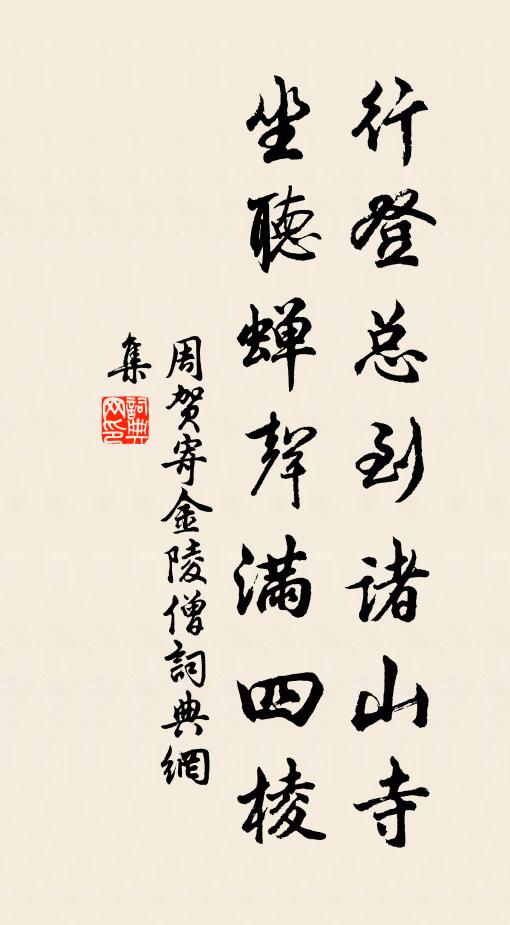 行登总到诸山寺
坐聽蝉聲满四棱
周贺寄金陵僧詞典網
集
詞典网印